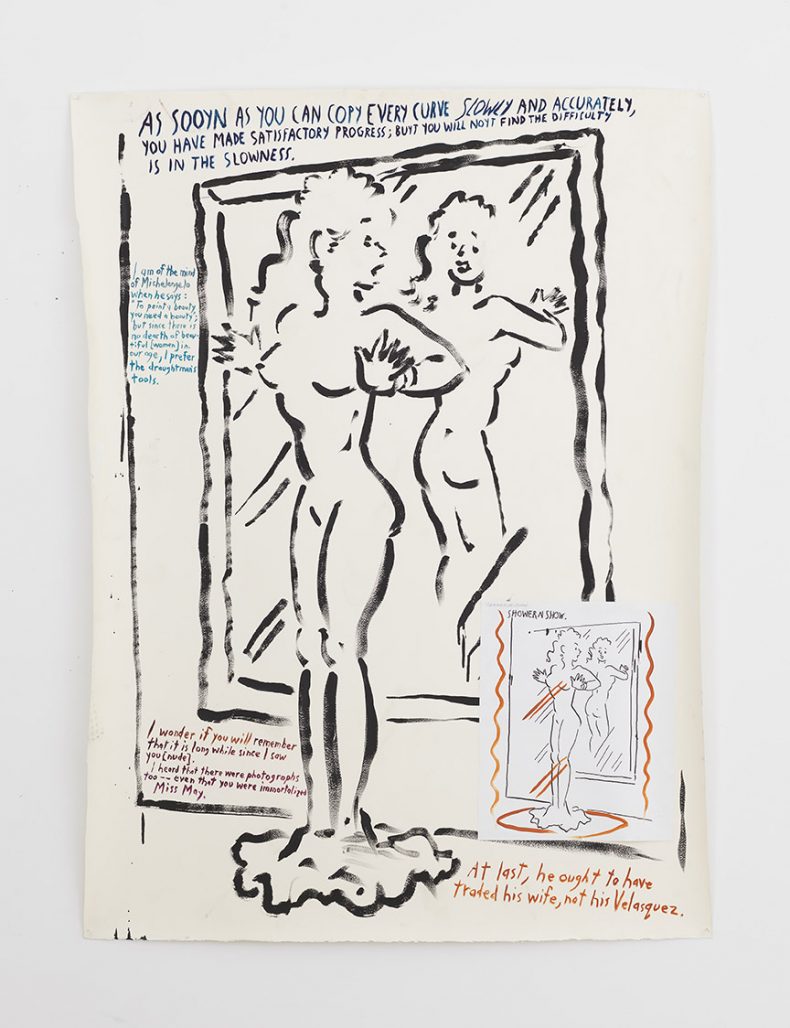 AS SOOYN AS YOU CAN COPY EVERY CURVE SLOWLY AND ACCURATELY,
YOU HAVE MADE SATISFACTORY PROGRESS; BUYT YOU WILL NOYT FIND THE DIFFICULTY
IS IN THE SLOWNESS.
I am of the mind
of Michelangelo
when he says:
"To paint a beauty,
you need a beauty";
but since there is
no dearth of beau-
tiful [women] in
our age, I prefer
the draughtman's
tools.
SHOWERN SHOW.
I wonder if you will remember
that it is long while since I saw
you [nude].
I heard that there were photographs
too -- even that you were immortalized
Miss May.
At last, he ought to have
traded his wife, not his Velasquez.